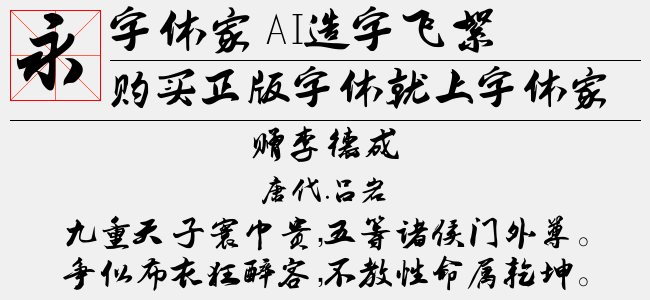 永
字体家 AI造字飞絮
购买正版字体就上字体家
赠李德成
唐代.吕岩
九重天子寰中贵,五等诸侯门外尊。
争似布衣狂醉客,不教性命属乾坤。